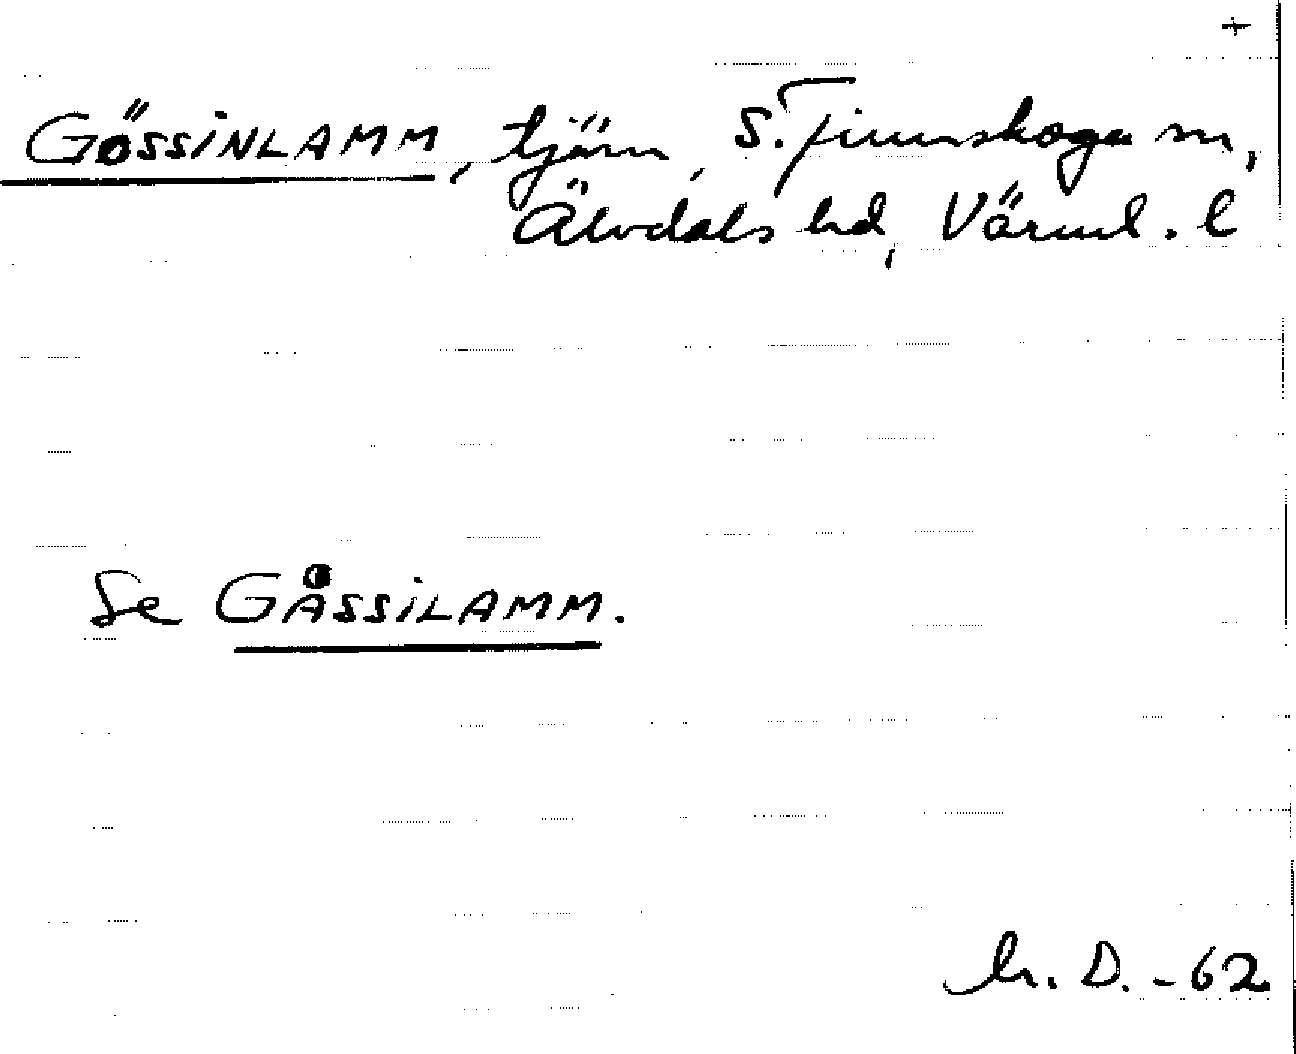 +
GÖSSINLAMM, tjärn, S. Finnskoga sn,
Älvdals hd, Värml. l
Se GÅSSILAMM.
h. D. -62